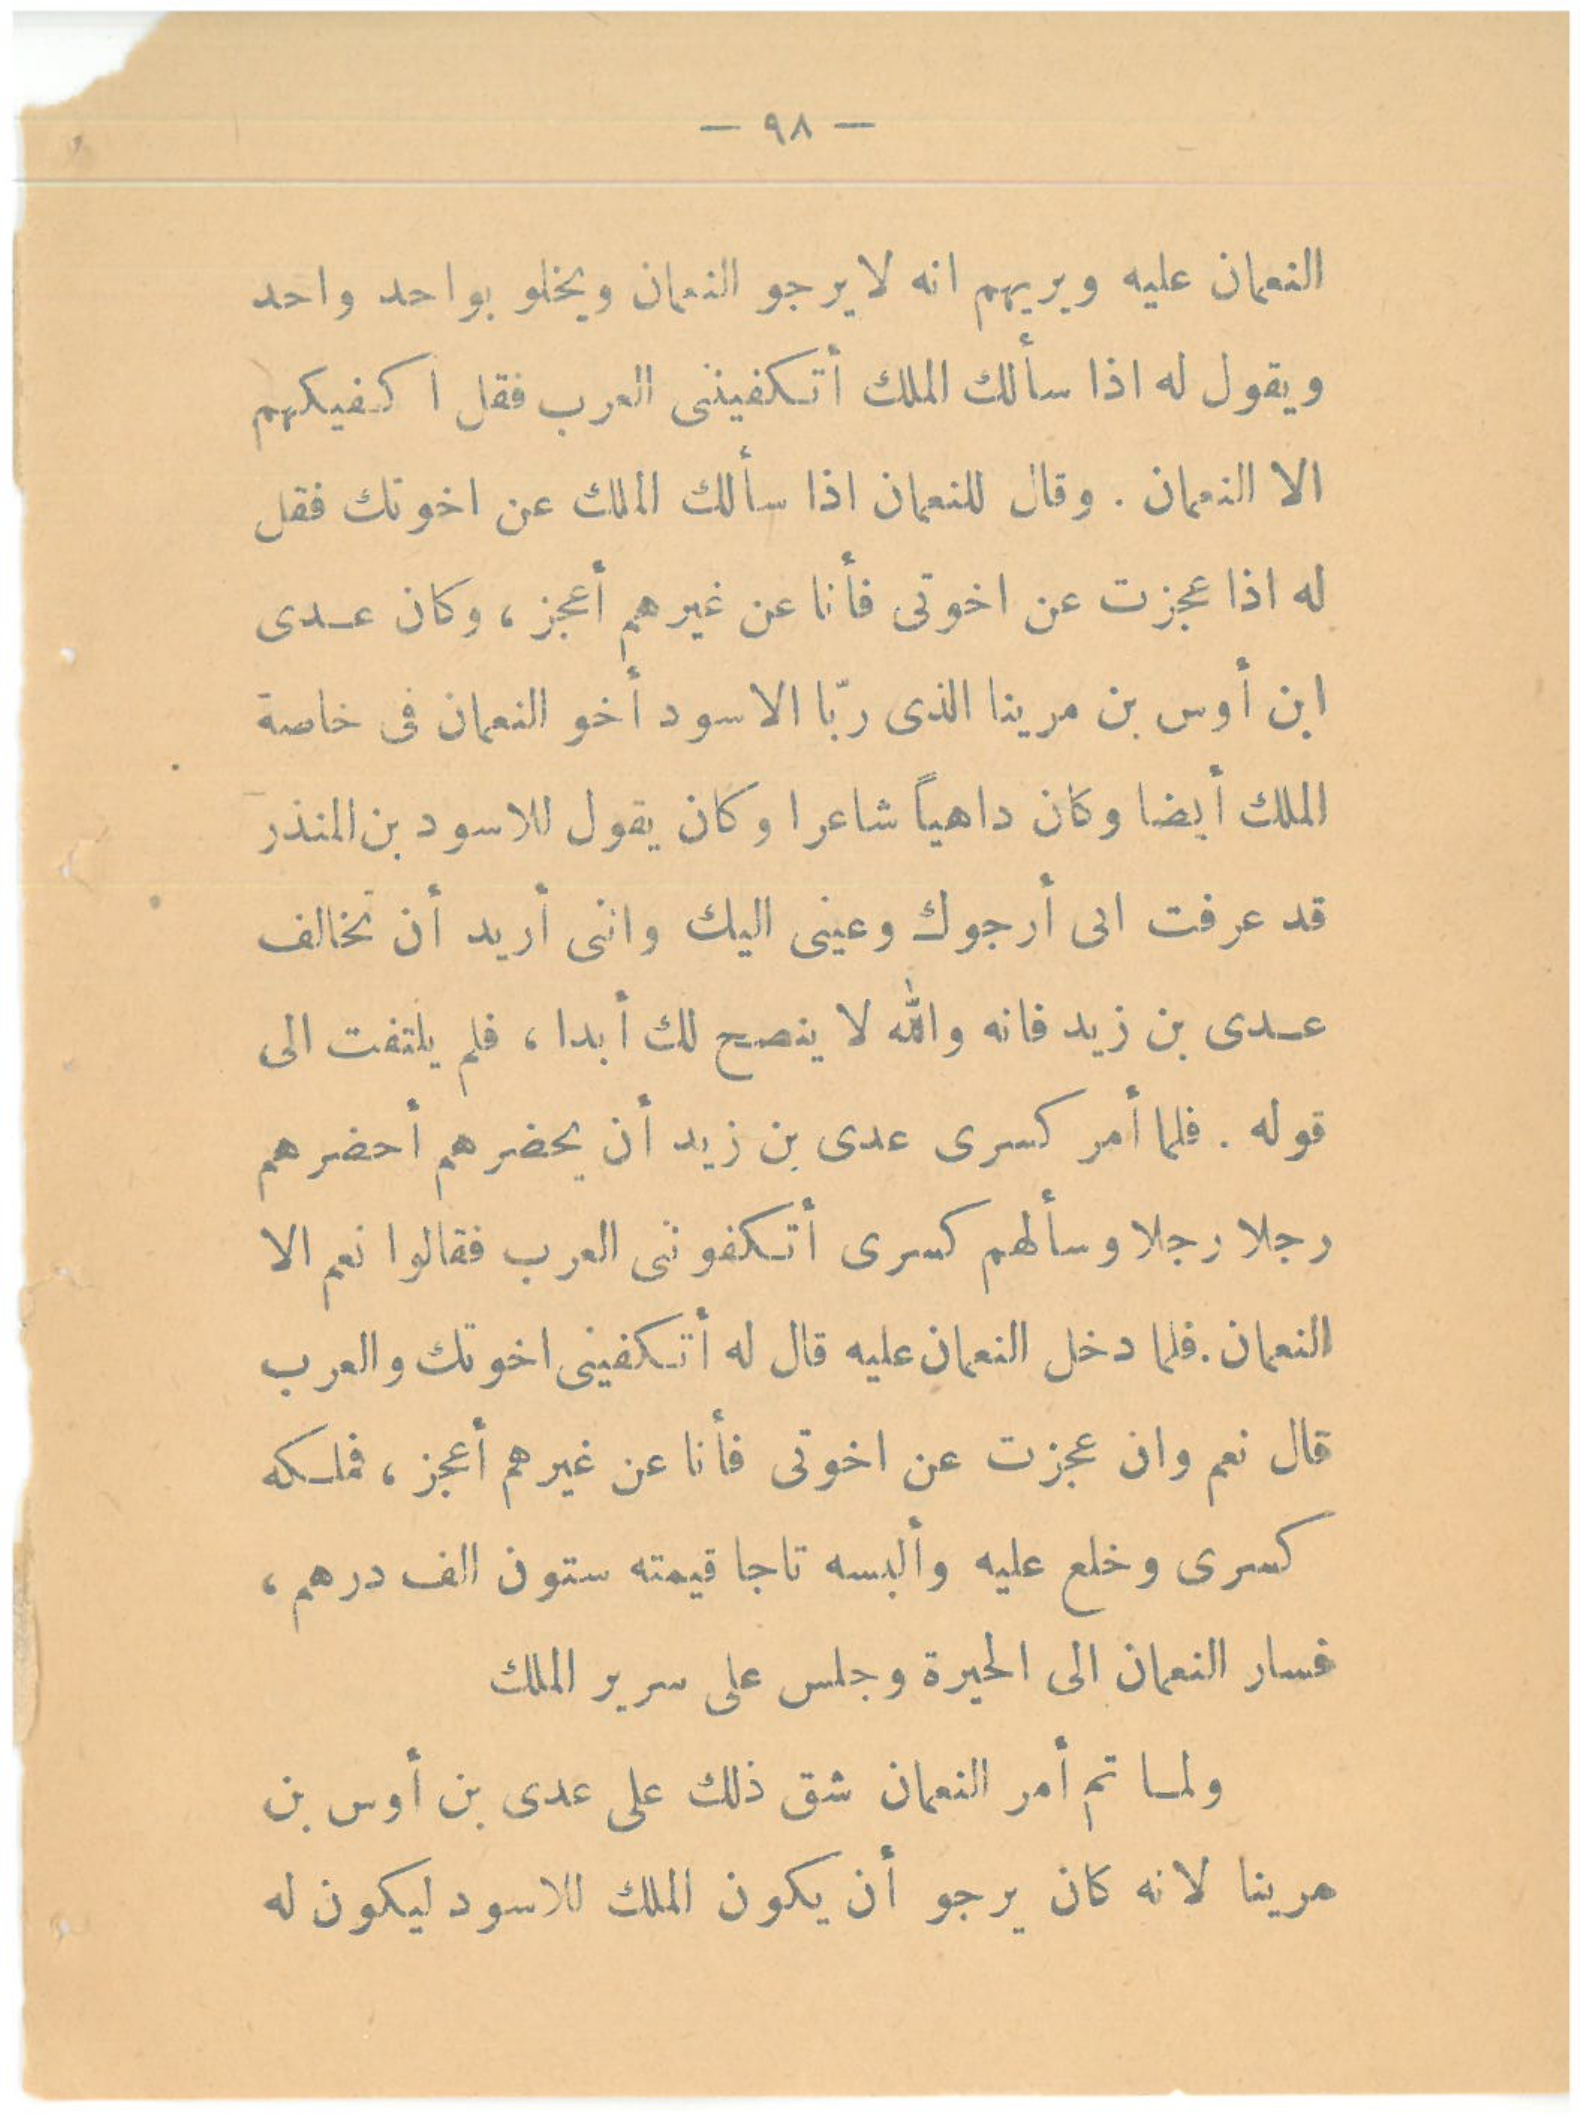 — ٩٨ —
النعمان عليه ويريهم انه لا يرجو النعمان ويخلو بواحد واحد
ويقول له اذا سألك الملك أتكفيننى العرب فقل اكفيكهم
الا النعمان . وقال للنعمان اذا سألك الملك عن اخوتك فقل
له اذا عجزت عن اخوتى فأنا عن غيرهم أعجز ، وكان عدى
ابن أوس بن مرينا الذى ربّا الاسود أخو النعمان فى خاصة
الملك أيضا وكان داهياً شاعرا وكان يقول للاسود بن المنذر
قد عرفت انى أرجوك وعينى اليك واننى أريد أن تخالف
عدى بن زيد فانه والله لا ينصح لك أبدا ، فلم يلتفت الى
قوله . فلما أمر كسرى عدى بن زيد أن يحضرهم أحضرهم
رجلا رجلا وسألهم كسرى أتكفوننى العرب فقالوا نعم الا
النعمان . فلما دخل النعمان عليه قال له أتكفينى اخوتك والعرب
قال نعم وان عجزت عن اخوتى فأنا عن غيرهم أعجز ، فملكه
كسرى وخلع عليه وألبسه تاجا قيمته ستون الف درهم ،
فسار النعمان الى الحيرة وجلس على سرير الملك
ولما تم أمر النعمان شق ذلك على عدى بن أوس بن
مرينا لانه كان يرجو أن يكون الملك للاسود ليكون له